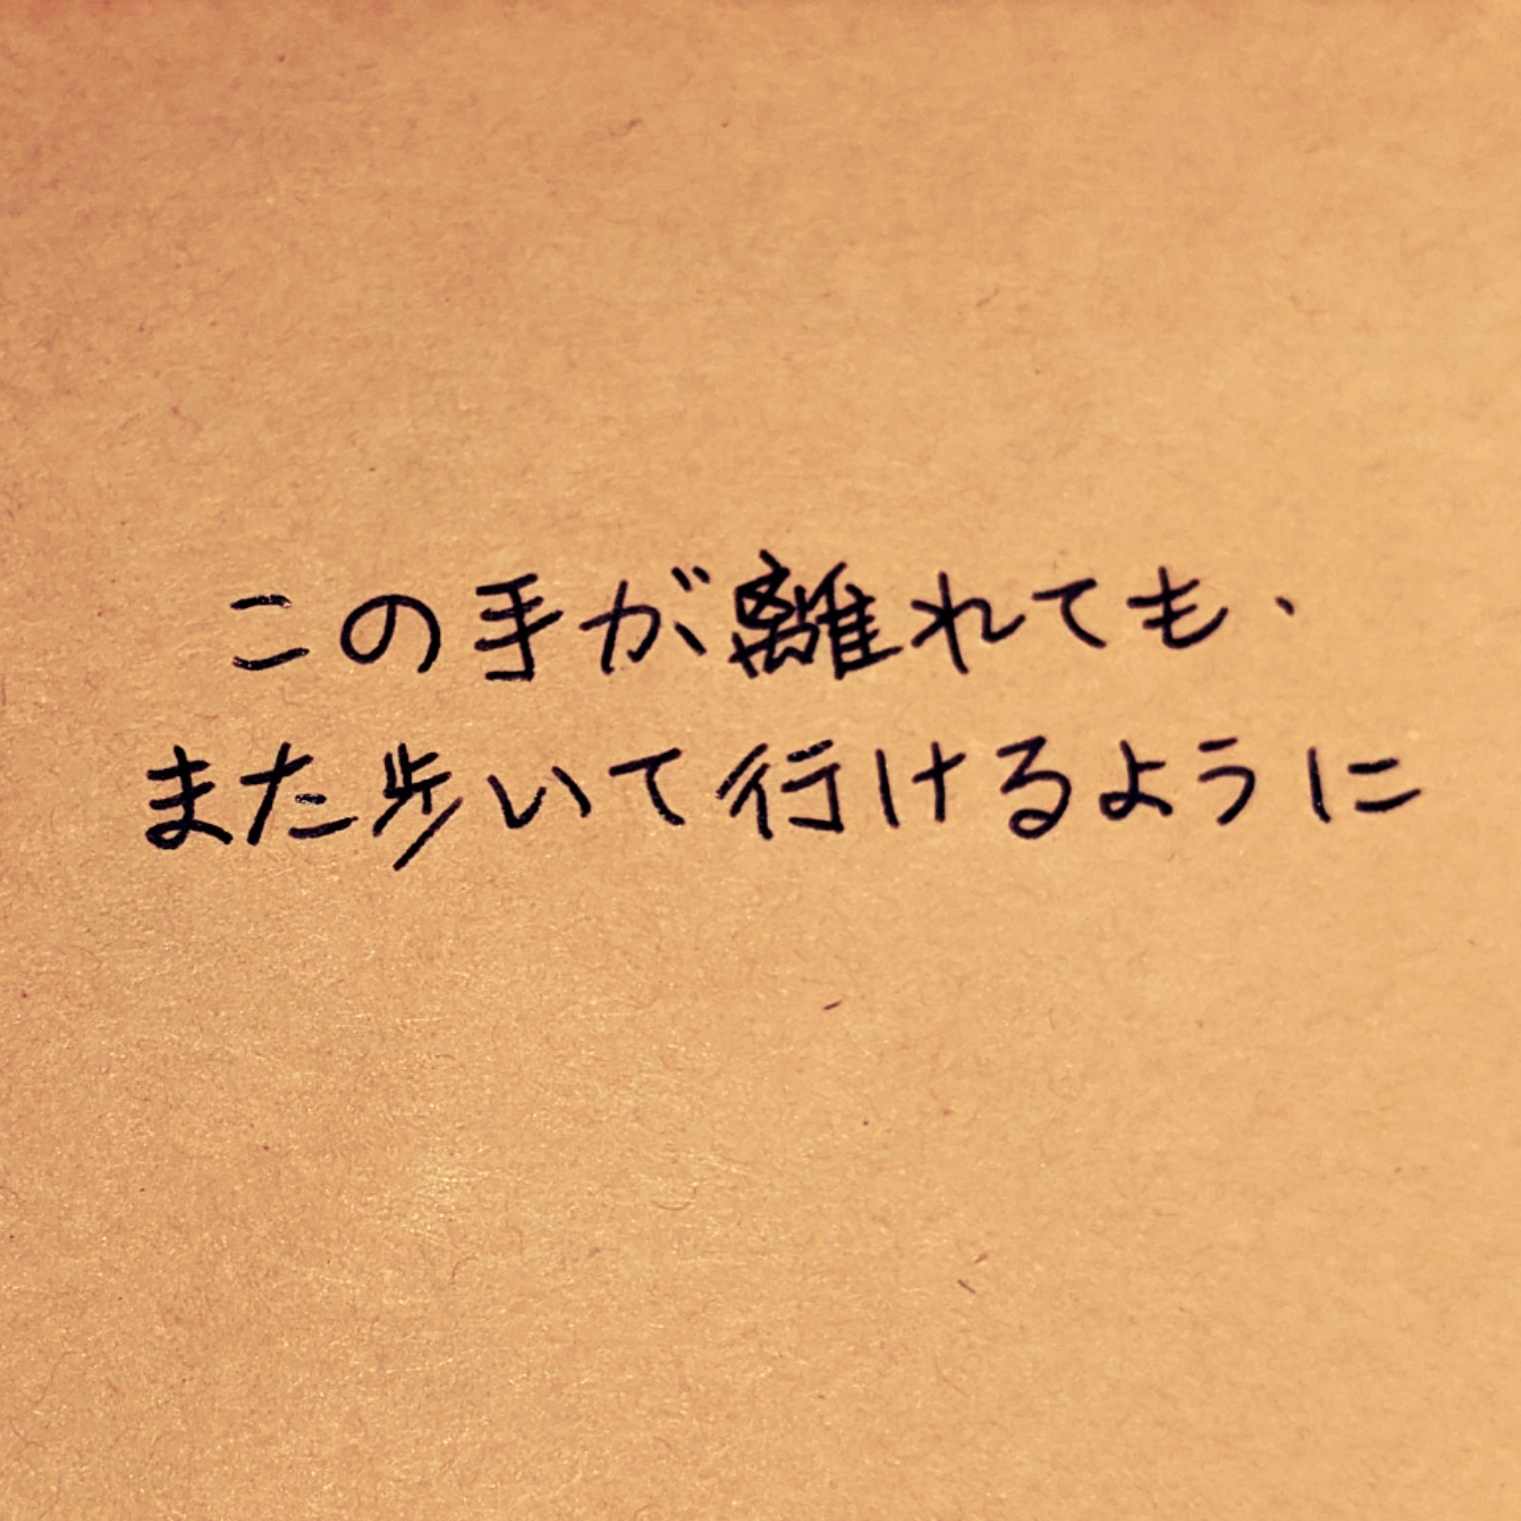 この手が離れても、
また歩いて行けるように